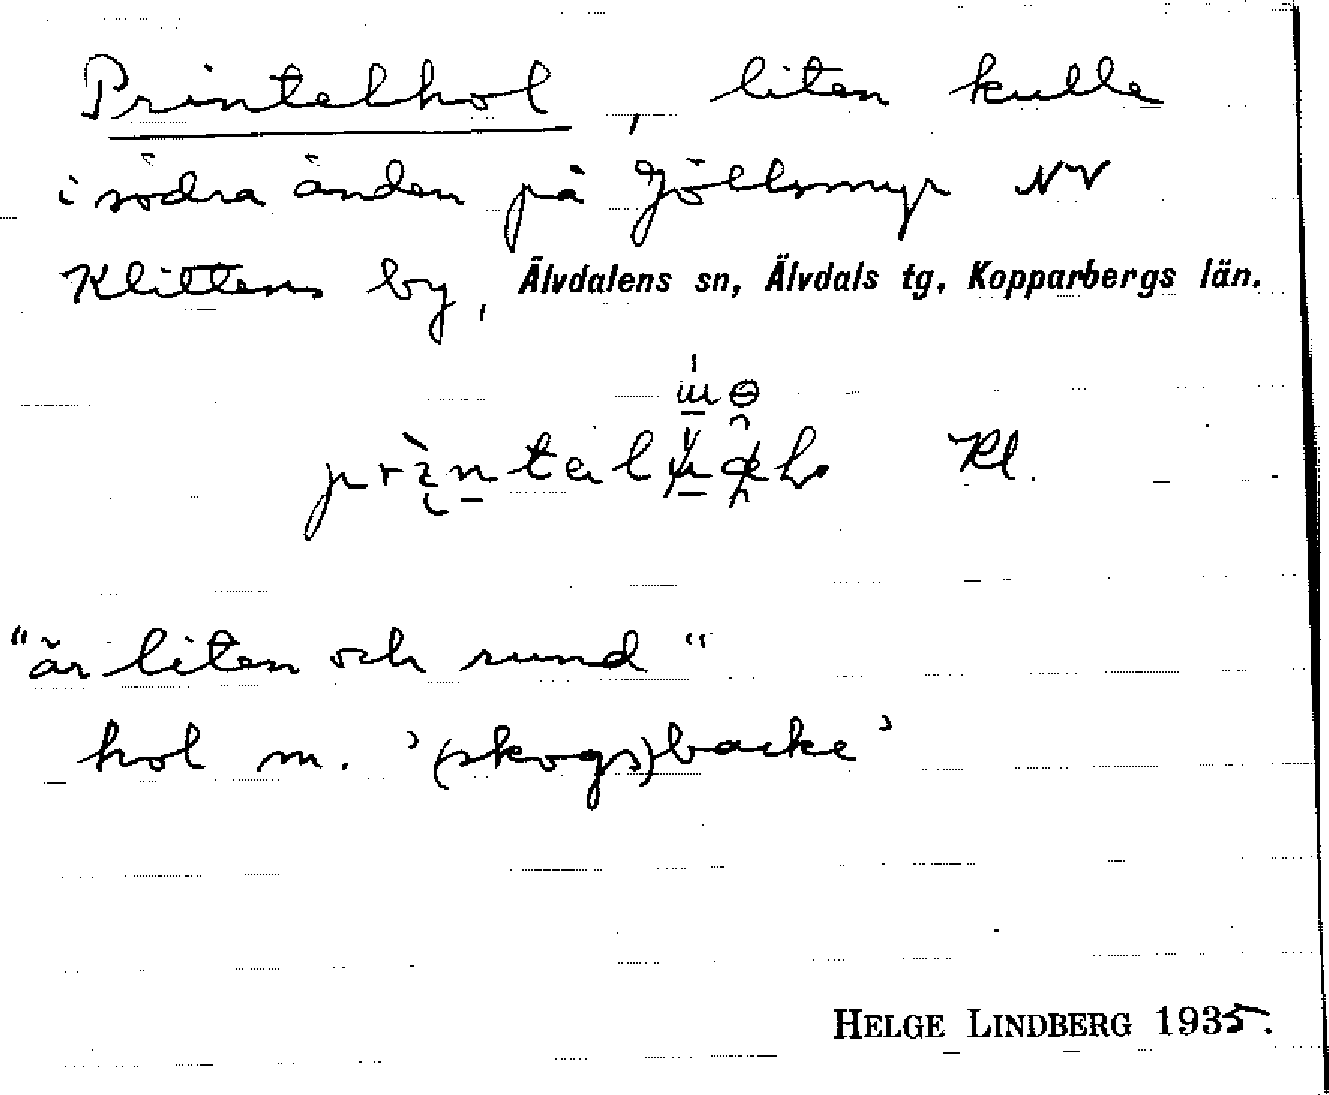 Printelhol, liten kulle
i södra änden på Jöllsmyr NV
Klittens by, Älvdalens sn, Älvdals tg, Kopparbergs län.
Kl.
"är liten och rund"
hol m. '(skogs)backe'
HELGE LINDBERG 1935.